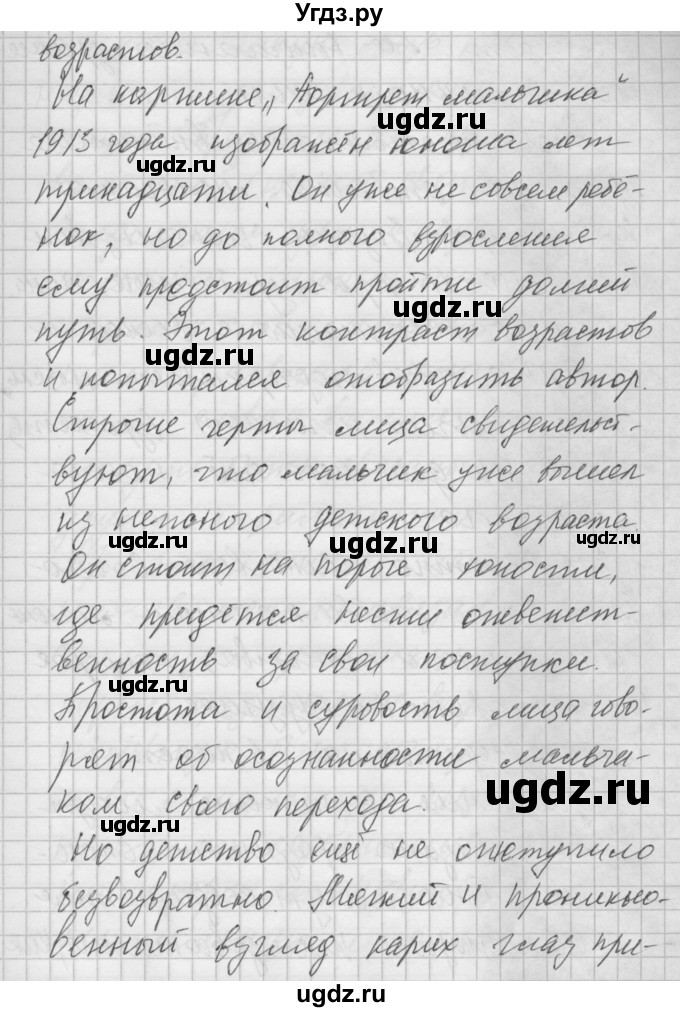 Угдз.ру
возрастов.
На картине „Портрет мальчика"
ugdz.ru
1913 года изображён юноша лет
ugdz.ru
тринадцати. Он уже не совсем ребё-
нок, но до полного взросления
ему предстоит пройти долгий
ugdz.ru
путь. Этот контраст возрастов
ugdz.ru
и попытался отобразить автор.
Строгие черты лица свидетельст-
вуют, что мальчик уже вышел
из нежного детского возраста.
ugdz.ru ugdz.ru ugdz.ru
Он стоит на пороге юности,
где придётся нести ответст-
венность за свои поступки.
ugdz.ru
Простота и суровость лица гово-
рят об осознанности мальчи-
ком своего перехода.
ugdz.ru
ugdz.ru
Но детство ещё не отступило
безвозвратно. Мягкий и проникно-
венный взгляд карих глаз при-
ugdz.ru